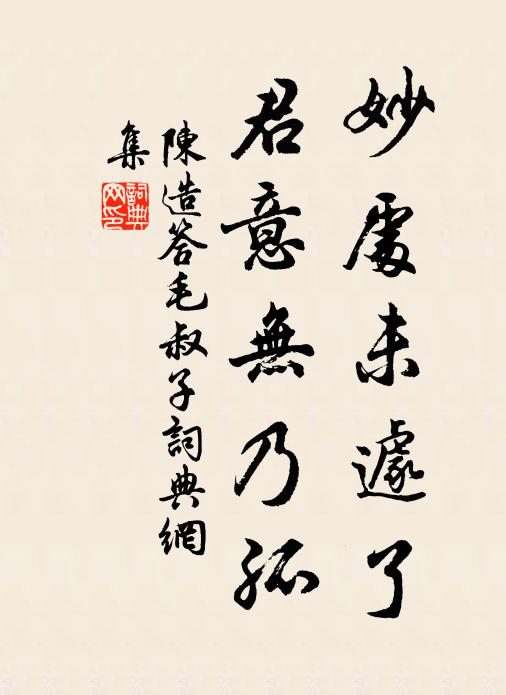 妙處未遽了
君意無乃孤
陳造答毛叔子詞典網
集
詞典網印